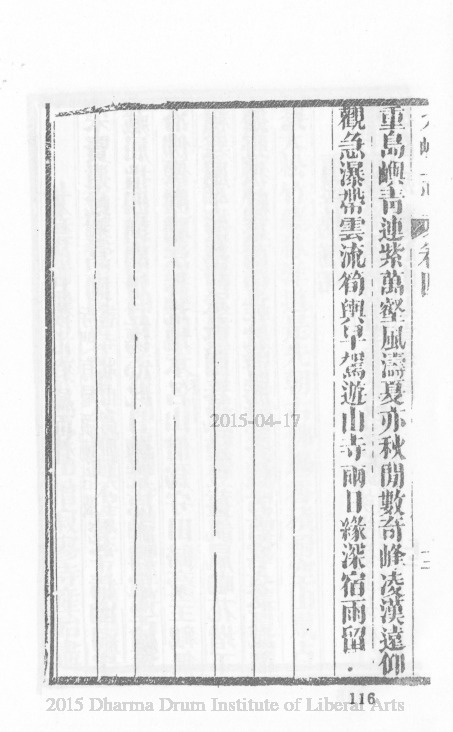 重島嶼青連紫萬壑風濤夏亦秋閒數奇峰凌漢遠仰
觀急瀑帶雲流筍輿早駕遊山寺兩日緣深宿雨留
2015-04-17
116
2015 Dharma Drum Institute of Liberal Arts